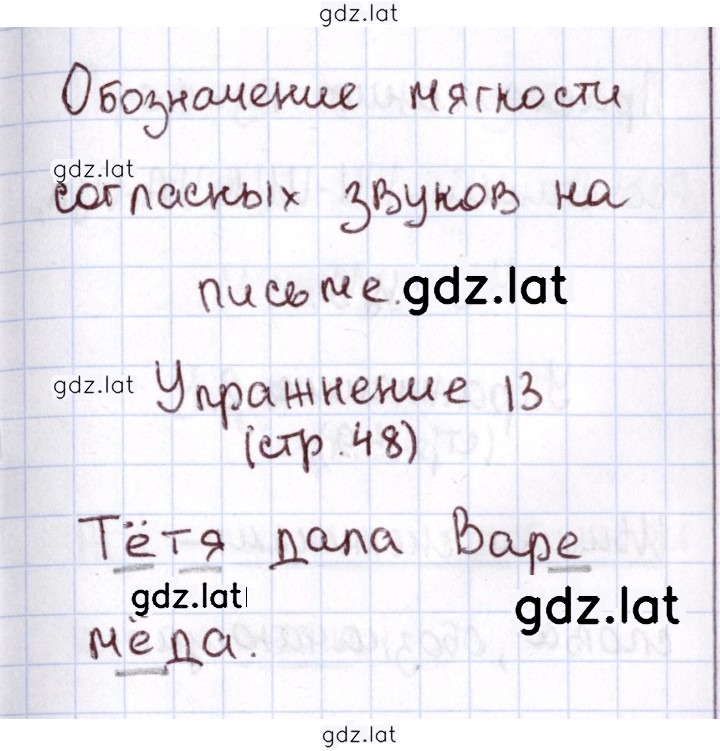 gdz.lat
Обозначение мягкости
gdz.lat
согласных звуков на
письме. gdz.lat
gdz.lat Упражнение 13
(стр. 48)
Тётя дала Варе
gdz.lat gdz.lat
мёда.
gdz.lat